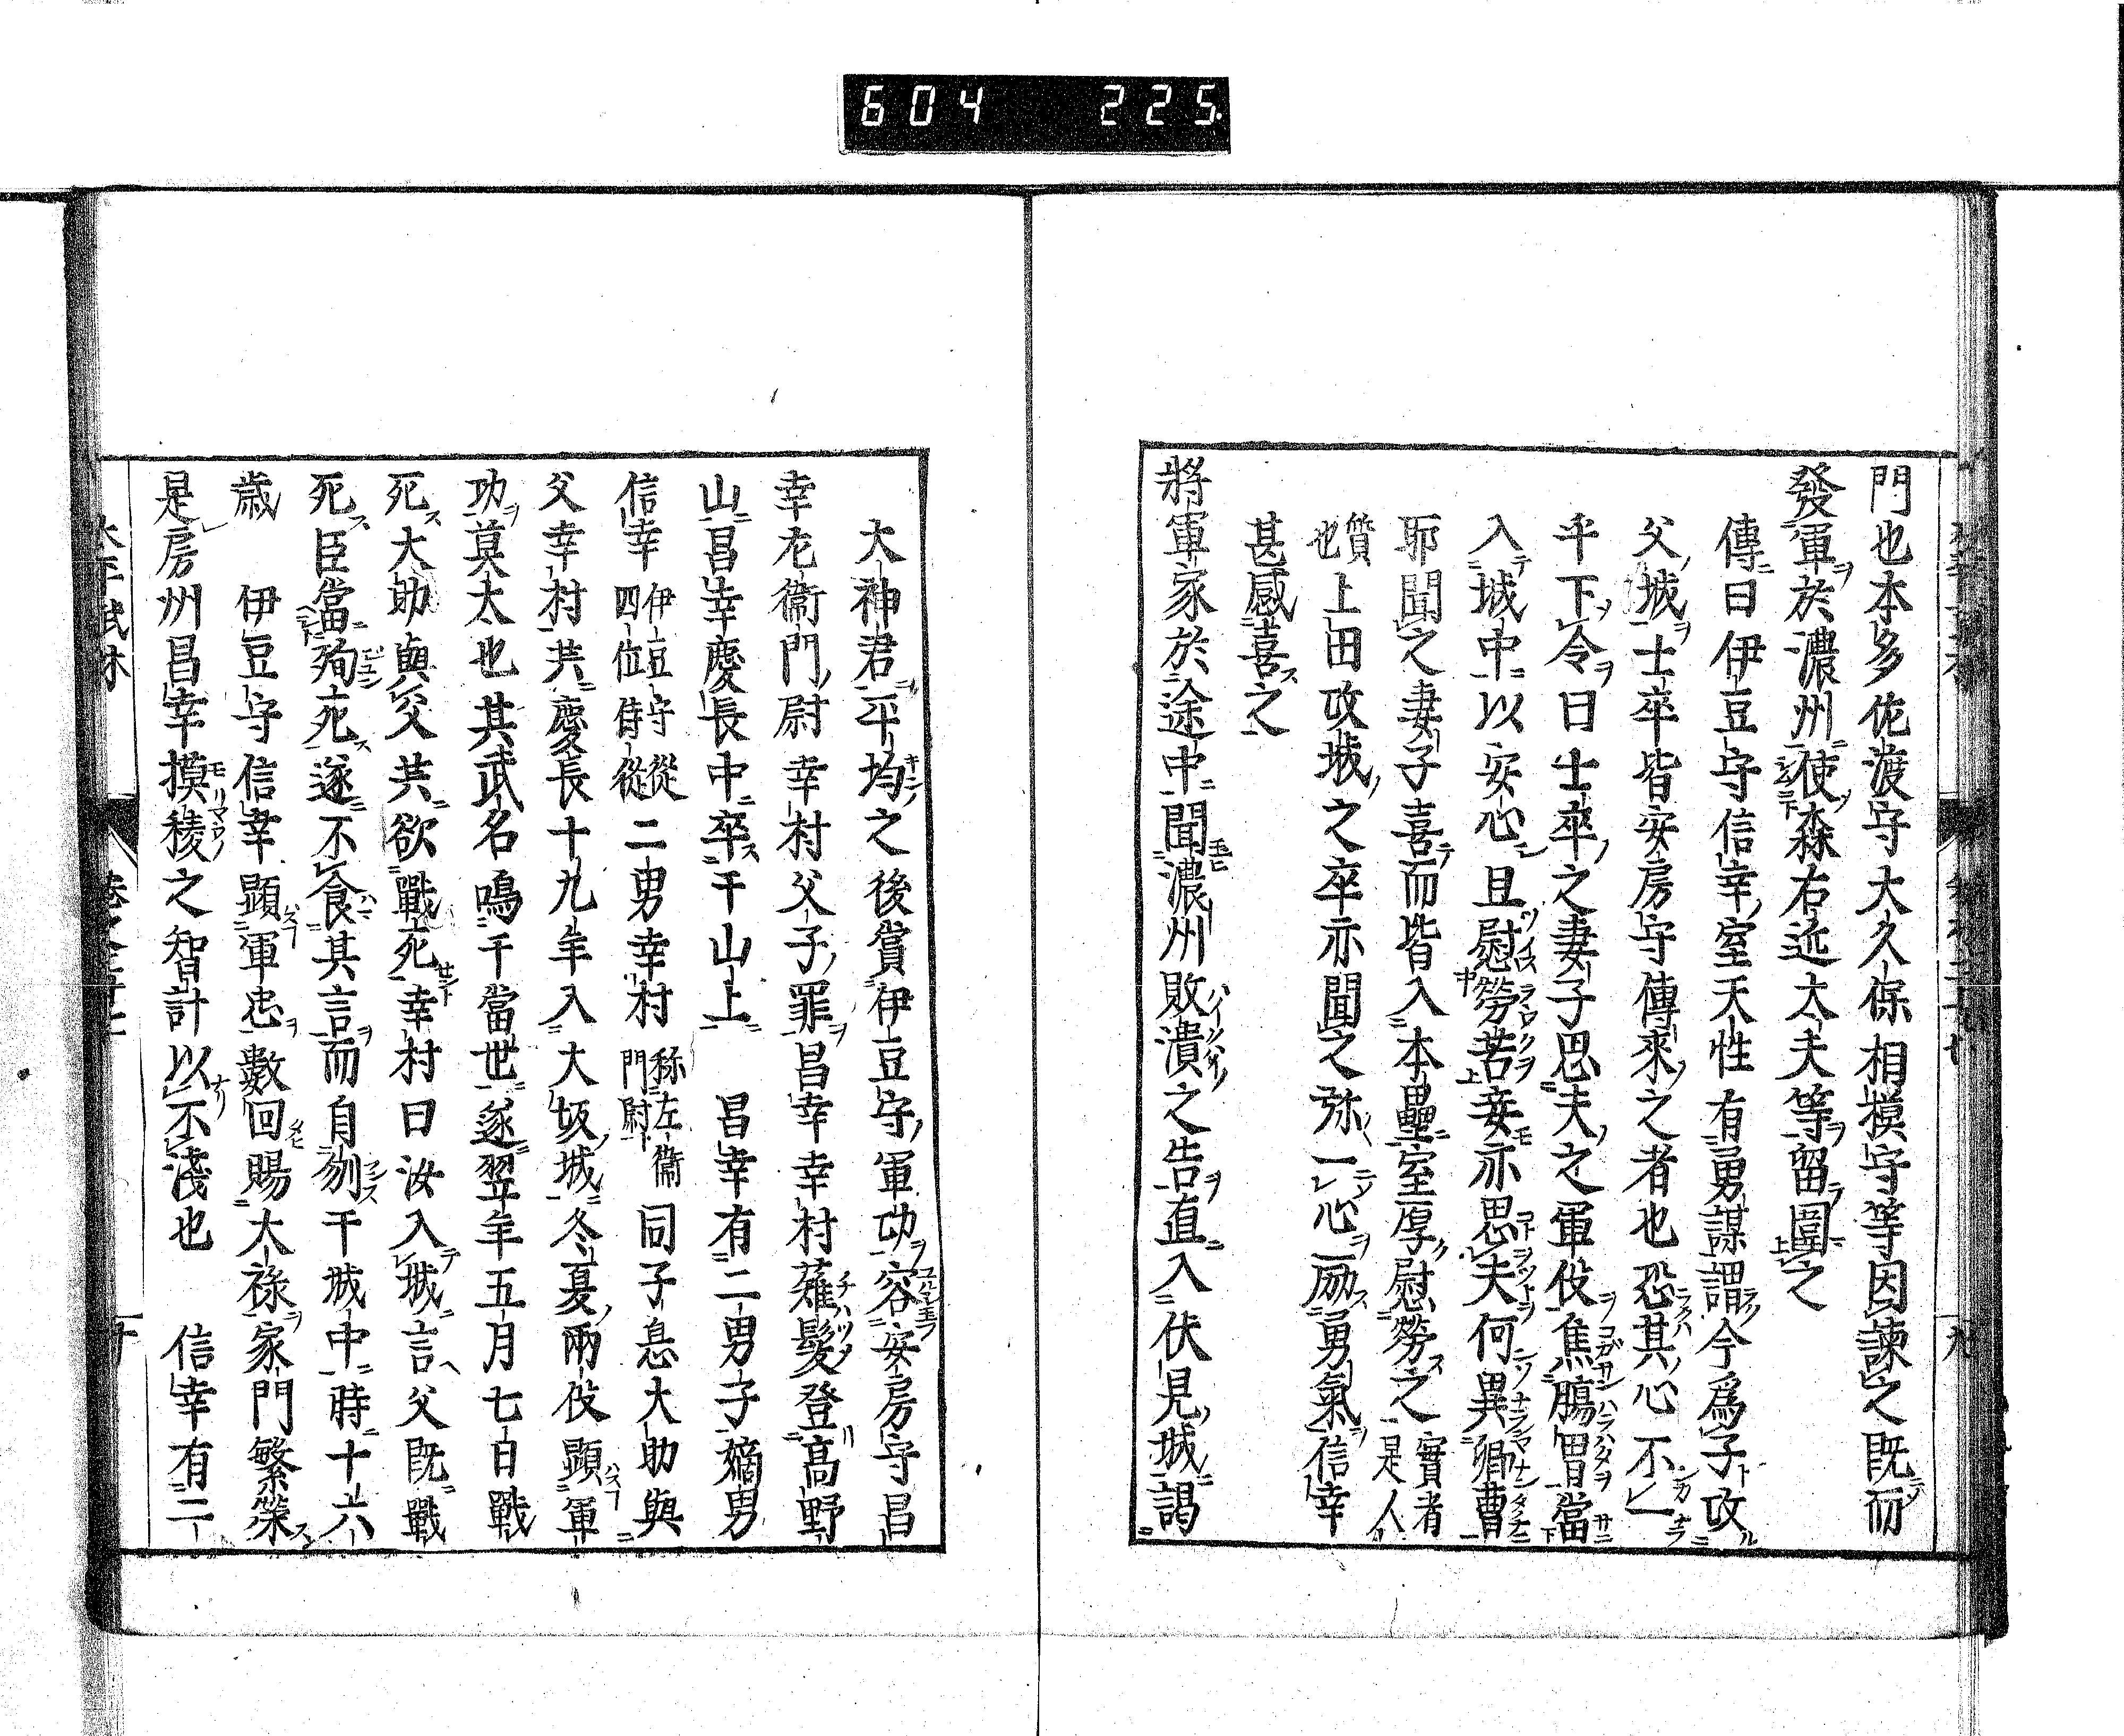 604 225
門也本多佐渡守大久保相摸守等因諫之既而
發軍於濃州使森右近太夫等留圍之
傳曰伊豆守信幸室天性有勇謀謂今爲子攻
父城士卒皆安房守傳來之者也恐其心不一
乎下令曰士卒之妻子思夫之軍伇焦膓胃當
入城中以安心且慰勞苦妾亦思夫何異卿曹
耶聞之妻子喜而皆入本壘室厚慰勞之實者是人
質也上田攻城之卒亦聞之弥一心励勇氣信幸
甚感喜之
將軍家於途中聞濃州敗潰之告直入伏見城謁
大神君平均之後賞伊豆守軍功容安房守昌
幸左衞門尉幸村父子罪昌幸幸村薙髮登高野
山昌幸慶長中卒于山上　昌幸有二男子嫡男
信幸伊豆守從四位侍從二男幸村称左衞門尉同子息大助與
父幸村共慶長十九年入大坂城冬夏兩伇顯軍
功莫太也其武名鳴于當世遂翌年五月七日戰
死大助與父共欲戰死幸村曰汝入城言父既戰
死臣當殉死遂不食其言而自刎于城中時十六
歳　伊豆守信幸顯軍忠數回賜大祿家門繁榮
是房州昌幸摸稜之智計以不淺也　信幸有二